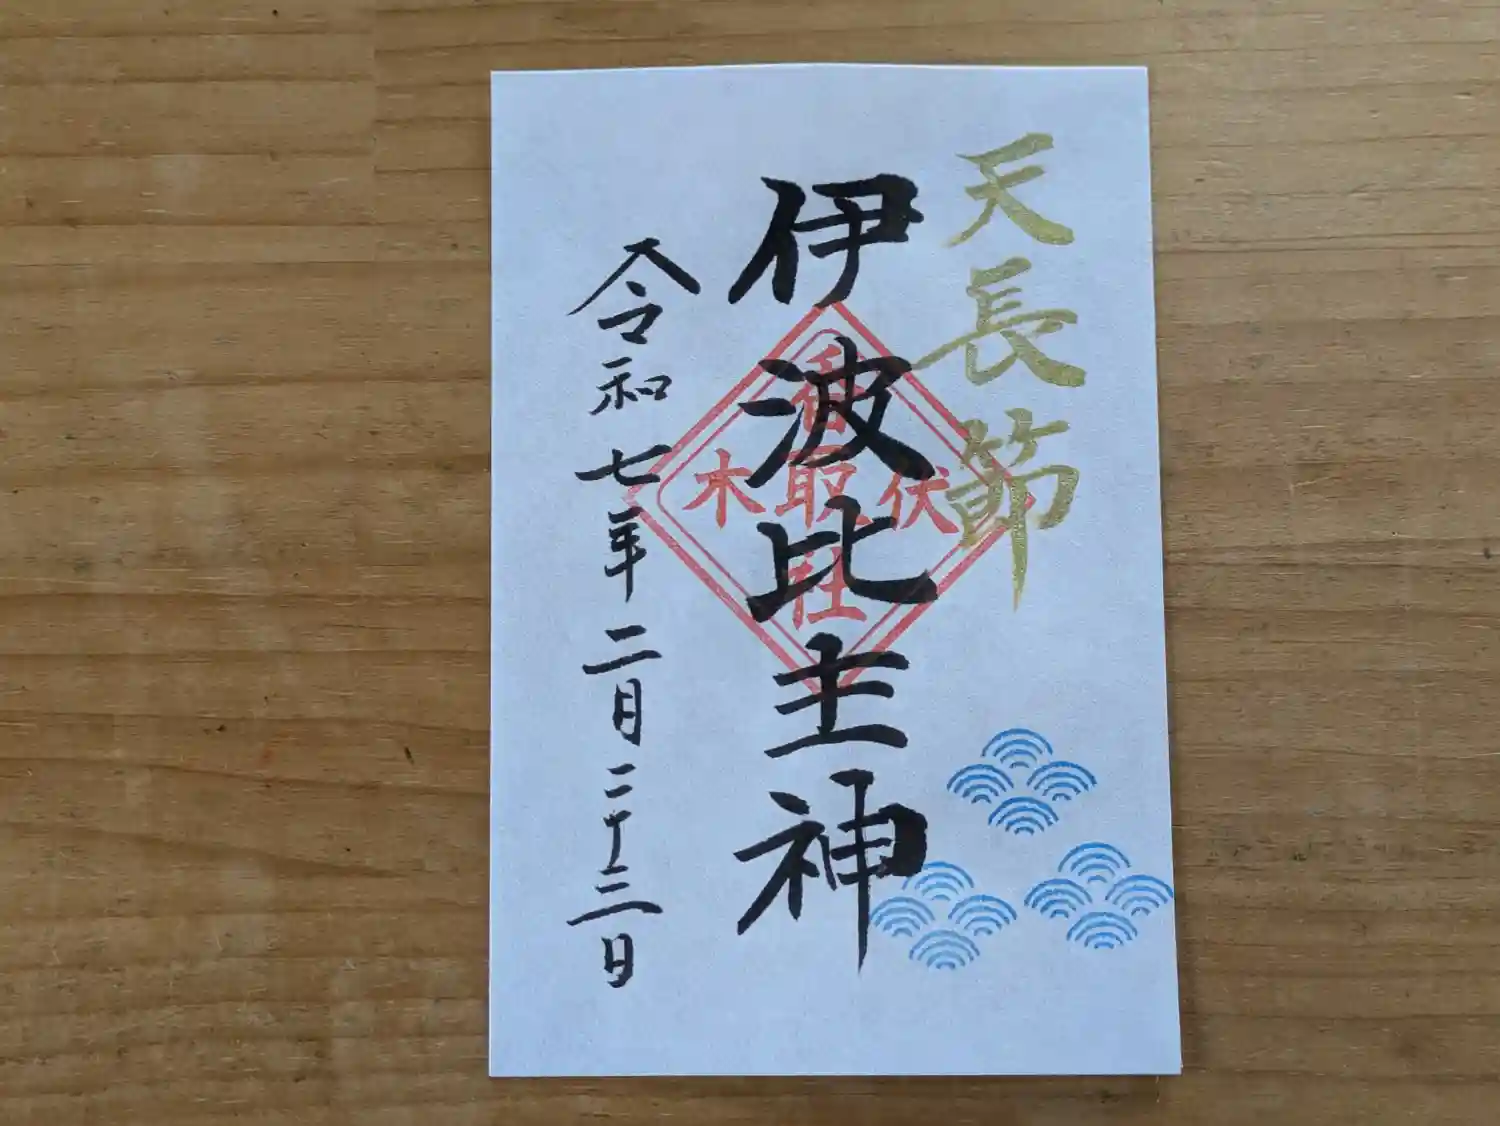 天長節
伊波比主神
伏木
香取社
令和七年二月二十三日